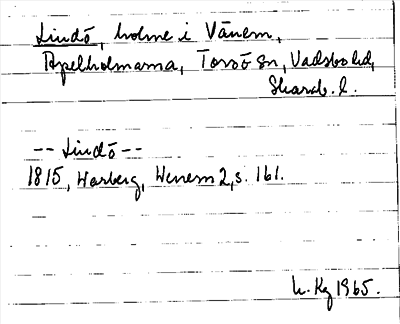 Lindö, holme i Vänern,
Apelholmarna, Torsö sn, Vadsbo hd,
Skarab. l.
-- Lindö --
1815, Warberg, Wenern 2, s. 161.
L. Kg 1965.